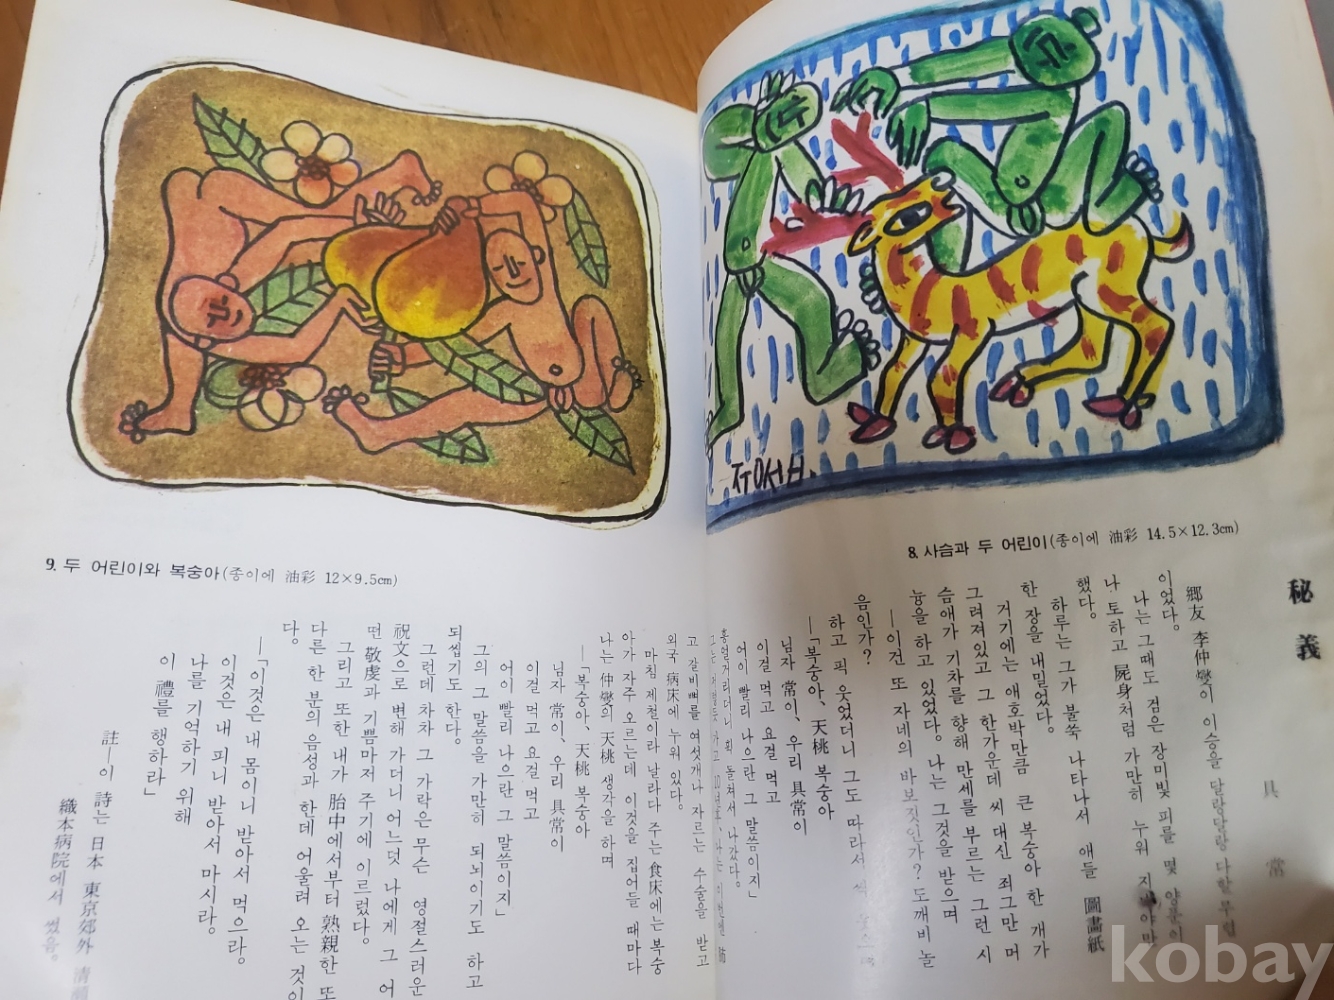 ㅈㅜㅇㅓㅅㅂ.
8. 사슴과 두 어린이(종이에 油彩 14.5×12.3cm)
9. 두 어린이와 복숭아(종이에 油彩 12×9.5cm)
秘義
具常
鄕友 李仲燮이 이승을 달랑달랑 다할 무렵
이었다.
나는 그때도 검은 장미빛 피를 몇 양푼이
나 토하고 屍身처럼 가만히 누워 지
했다.
하루는 그가 불쑥 나타나서 애들 圖畫紙
한 장을 내밀었다.
거기에는 애호박만큼 큰 복숭아 한 개가
그려져 있고 그 한가운데 씨 대신 죄그만 머
슴애가 기차를 향해 만세를 부르는 그런 시
늉을 하고 있었다. 나는 그것을 받으며
—이건 또 자네의 바보짓인가? 도깨비 놀
음인가?
하고 픽 웃었더니 그도 따라서
—「복숭아, 天桃 복숭아
님자 常이, 우리 具常이
이걸 먹고 요걸 먹고
어이 빨리 나으란 그 말씀이지」
흥얼거리더니 휙 돌쳐서 나갔다.
고 갈비뼈를 여섯개나 자르는 수술을 받고
외국 病床에 누워 있다.
마침 제철이라 날라다 주는 食床에는 복숭
아가 자주 오르는데 이것을 집어들 때마다
나는 仲燮의 天桃 생각을 하며
—「복숭아, 天桃 복숭아
님자 常이, 우리 具常이
이걸 먹고 요걸 먹고
어이 빨리 나으란 그 말씀이지」
그의 그 말씀을 가만히 되뇌이기도 하고
되씹기도 한다.
그런데 차차 그 가락은 무슨 영절스러운
祝文으로 변해 가더니 어느덧 나에게 그 어
떤 敬虔과 기쁨마저 주기에 이르렀다.
그리고 또한 내가 胎中에서부터 熟親한 또
다른 한 분의 음성과 한데 어울려 오는 것이
다.
—「이것은 내 몸이니 받아서 먹으라.
이것은 내 피니 받아서 마시라.
나를 기억하기 위해
이 禮를 행하라」
註—이 詩는 日本 東京郊外 清
織本病院에서 썼음.
kobay